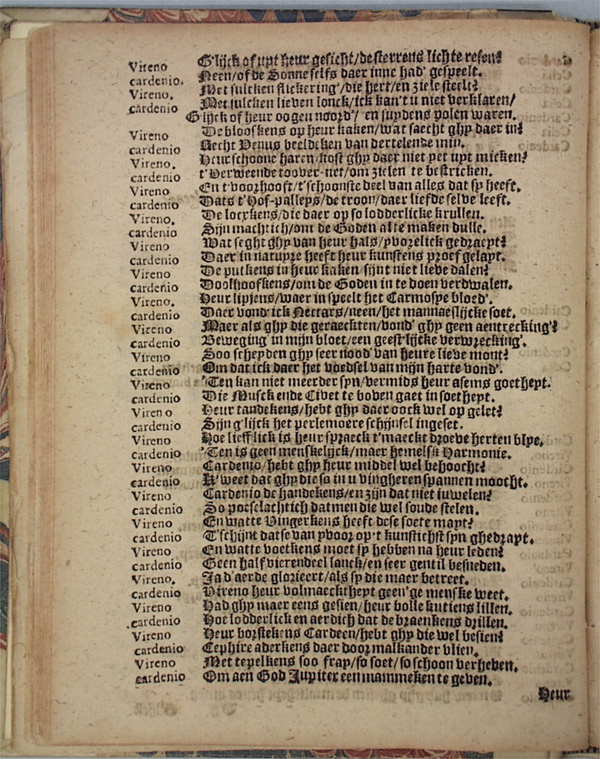 Vireno G'lijck of uyt heur gesicht/de sterrens lichte resen?
cardenio. Neen/of de Sonne selfs daer inne had' gespeelt.
Vireno. Met sulcken flickering'/die hert/en ziele steelt?
cardenio Met sulcken lieven lonck/ick kan't u niet verklaren/
Glijck of heur oogen noord'/ en suydens polen waren.
Vireno De blooskens op heur kaken/wat saecht ghy daer in?
cardenio Recht Venus beeldeken van dertelende min.
Vireno. Heur schoone haren/kost ghy daer niet yet uyt micken?
cardenio t'Verweende toover-net/om zielen te bestricken.
Vireno En t'voorhooft/t'schoonste deel van alles dat sy heeft.
cardenio Dats t'Hof-palleys/de troon/daer liefde selve leeft.
Vireno. De locxkens/die daer op so lodderlicke krullen.
cardenio Sijn machtich/om de Goden al te maken dulle.
Vireno Wat seght ghy van heur hals/yvorelick gedraeyt?
cardenio Daer in natuyre heeft heur kunstens proef gelayt.
Vireno De putkens in heur kaken/sijnt niet lieve dalen?
cardenio Doolhoofkens/om de Goden in te doen verdwalen.
Vireno. Heur lipjens/waer in speelt het Carmosye bloed'.
cardenio Daer vond' ick Nectars/neen/het mannaeslijcke soet.
Vireno. Maer als ghy die geraeckten/vond' ghy geen aentrecking'?
cardenio Beweging' in mijn bloet/een geestlijcke verwrecking'.
Vireno Soo scheyden ghy seer nood' van heure lieve mont?
cardenio Om dat ick daer het voedsel van mijn harte vond'.
Vireno 'Ten kan niet meerder syn/vermids heur asems goetheyt.
cardenio Die Musck ende Civet te boven gaet in soetheyt.
Vireno Heur tandekens/hebt ghy daer oock wel op gelet?
cardenio Sijn g'lijck het perlemoere schijnsel ingeset.
Vireno Hoe lieff'lick is heur spraeck t'maeckt droeve herten blye.
cardenio 'Ten is geen menskelijck/maer hemelsu Harmonie.
Vireno Cardenio/hebt ghy heur middel wel behoocht?
cardenio K'weet dat ghy die so in u vingheren spannen moocht.
Vireno Cardenio de handekens/en zijn dat niet iuwelen?
cardenio So poeselachtich datmen die wel soude stelen.
Vireno En watte Vingerkens heeft dese soete mayt?
cardenio T'schijnt datse van yvoor op-t kunstichst syn ghedrayt.
Vireno En watte voetkens moet sy hebben na heur leden?
cardenio Geen half vierendeel lanck/en seer gentil besneden.
Vireno. Ja d'aerde glorieert/als sy die maer betreet.
cardenio Vireno heur volmaecktheyt geen'ge menske weet.
Vireno Had ghy maer eens gesien/heur bolle kutiens lillen.
cardenio Hoe lodderlick en aerdich dat de braenkens drillen.
Vireno Heur borstekens Cardeen/hebt ghy die wel besien?
cardenio Cephire aderkens daer door malkander vlien.
Vireno Met tepelkens soo fray/so soet/so schoon verheven.
cardenio Om aen God Jupiter een mammeken te geven.
Heur